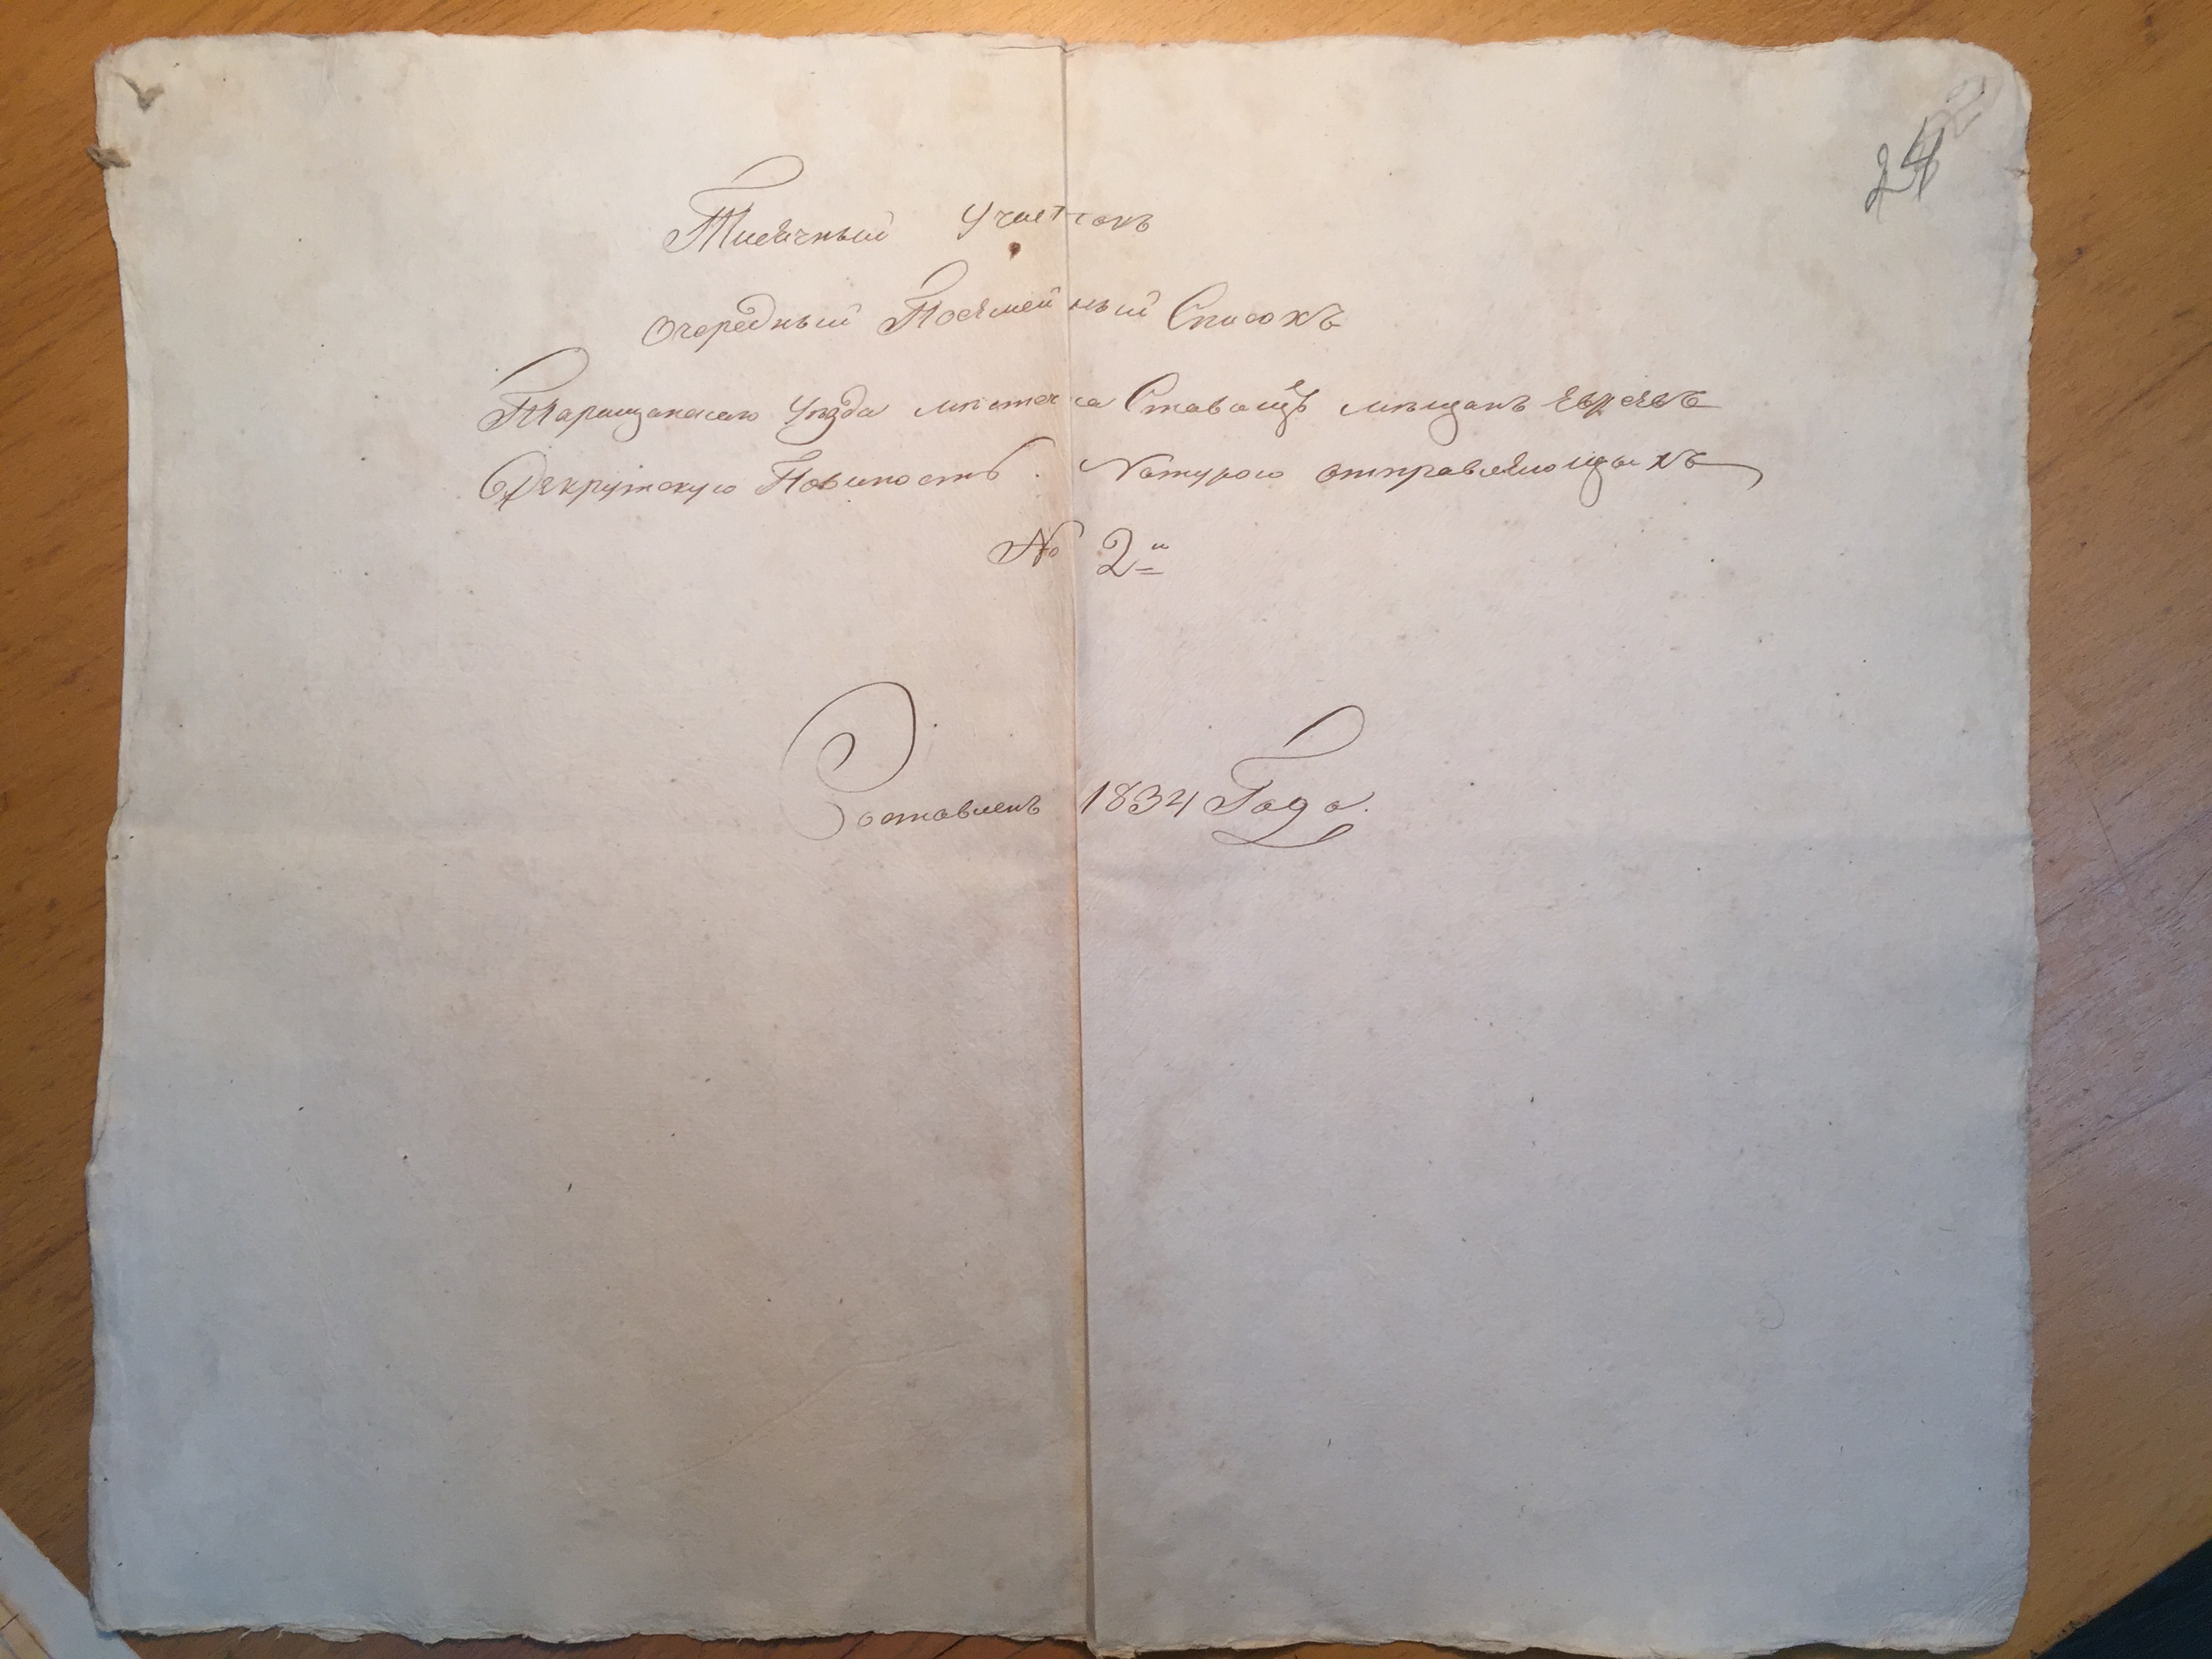 24
Тисячный Участокъ
Очередный Посемейный Списокъ
Таращанского Уѣзда мѣстечка Ставищъ мѣщанъ Евреевъ
Рекрутскую Повиность Натурою отправляющихъ
№ 2й
Составленъ 1834 Года.